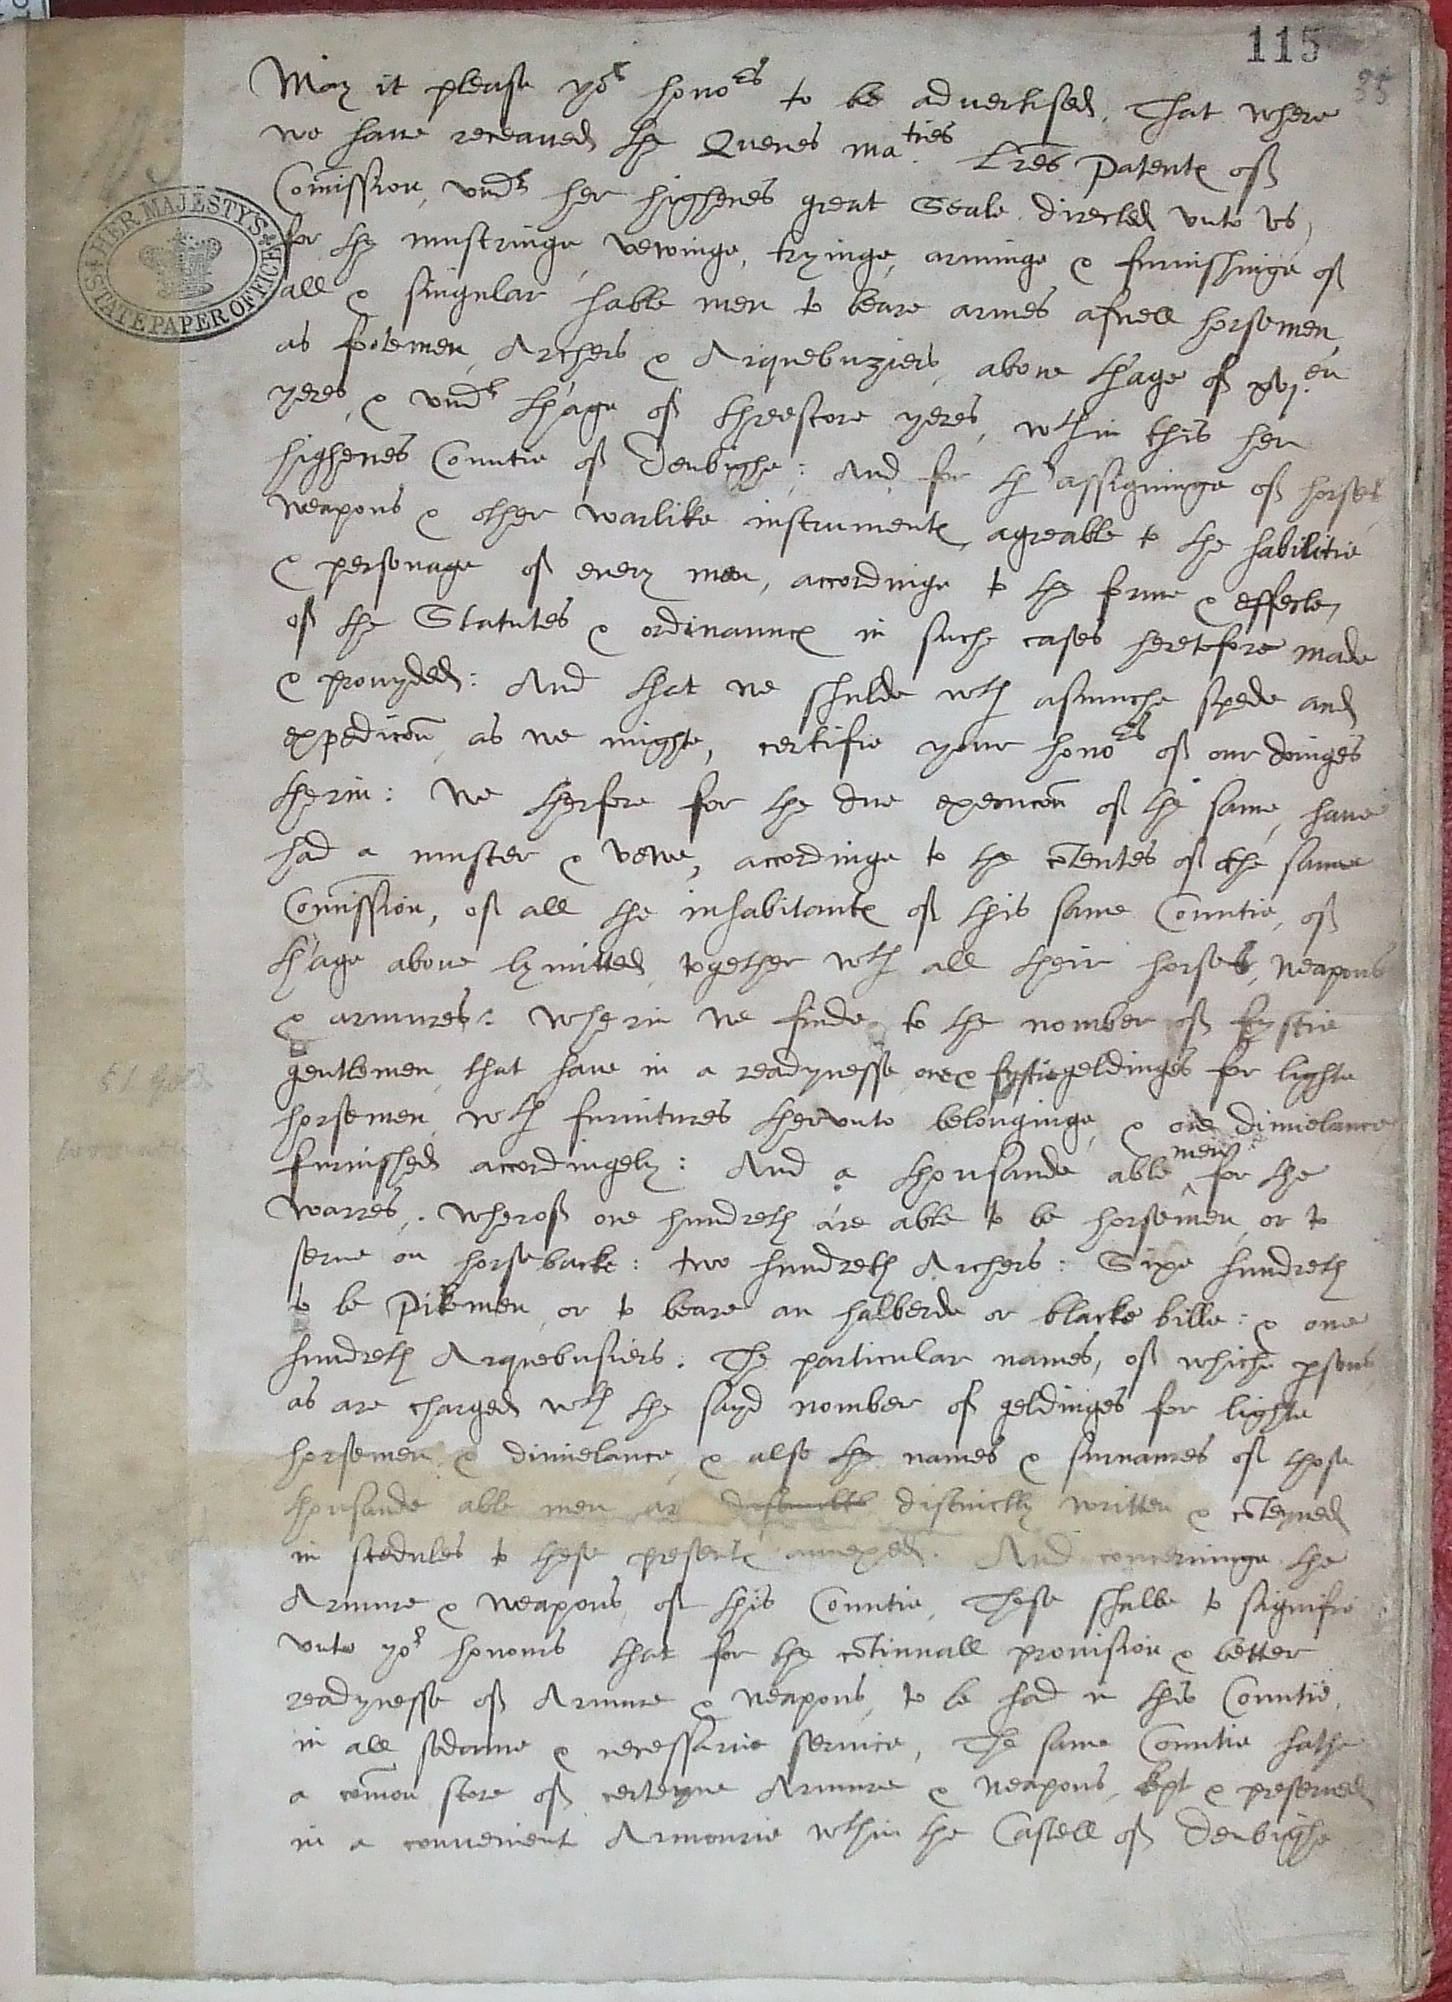 115
35
May it please yor honores to be advertised, That where
we haue receaued the Quenes maties Lres Patentes of
Comission, vnder her highenes great Seale directed vnto vs,
for the mustringe, vewinge, tryinge, arminge & furnishinge of
all & singular hable men to beare armes aswell horsemen
as fotemen, Archers & Arquebuziers, above th'age of xvj.en
yeres, & vnder th'age of threscore yeres, wthin this her
highenes Countie of Denbighe: And for th'assigninge of horses
weapons & other warlike instrumentes, agreable to the habilitie
& personage of euery man, accordinge to the forme & effecte,
of the Statutes & ordinaunces in suche cases heretofore made
& prouyded: And that we shulde wth asmuche spede and
expedicon as we mighte, certifie your honores of our doinges
therin: We therfore for the due execucon of the same, haue
had a muster & vewe, accordinge to the cotentes of the same
Comission, of all the inhabitantes of this same Countie, of
th'age above lymitted, together wth all their horses, weapons
& armures: Wherin we finde to the nomber of fystie
gentlemen that haue in a readynesse one & fystie geldinges for lighte
horsemen wth furnitures thervnto belonginge, & one dimielance
furnisshed accordingely: And a thousande able men for the
warres, wherof one hundreth are able to be horsemen or to
serue on horsebacke: two hundreth Archers: Sixe hundreth
to be Pikemen or to beare an halberde or blacke bille: & one
hundreth Arquebusiers. The particular names, of whiche psons
as are charged wth the sayd nomber of geldinges for lighte
horsemen & dimielance, & also the names & surnames of those
thousande able men ar distinctly written & coteyned
in scedules to these presentes annexed. And concerninge the
Armure & weapons of this Countie, These shalbe to signifie
vnto yor honours that for the cotinuall prouision & better
readynesse of Armure & weapons, to be had in this Countie,
in all sodaine & necessarie seruice, The same Countie hathe
a comon store of certeyne Armure & weapons, kept & preserued
in a conuenient Armourie wthin the Castell of Denbighe
HER MAJESTY'S
STATE PAPER OFFICE